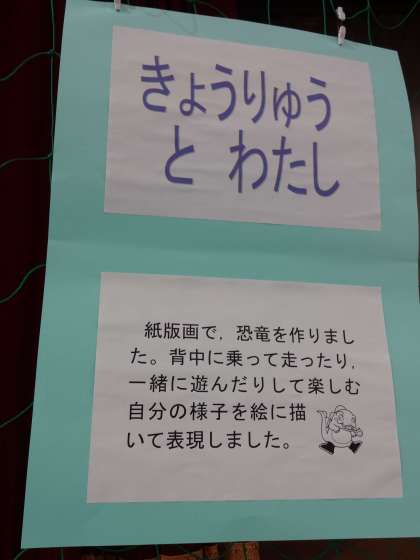 きょうりゅう
と わたし
紙版画で，恐竜を作りまし
た。背中に乗って走ったり，
一緒に遊んだりして楽しむ
自分の様子を絵に描
いて表現しました。